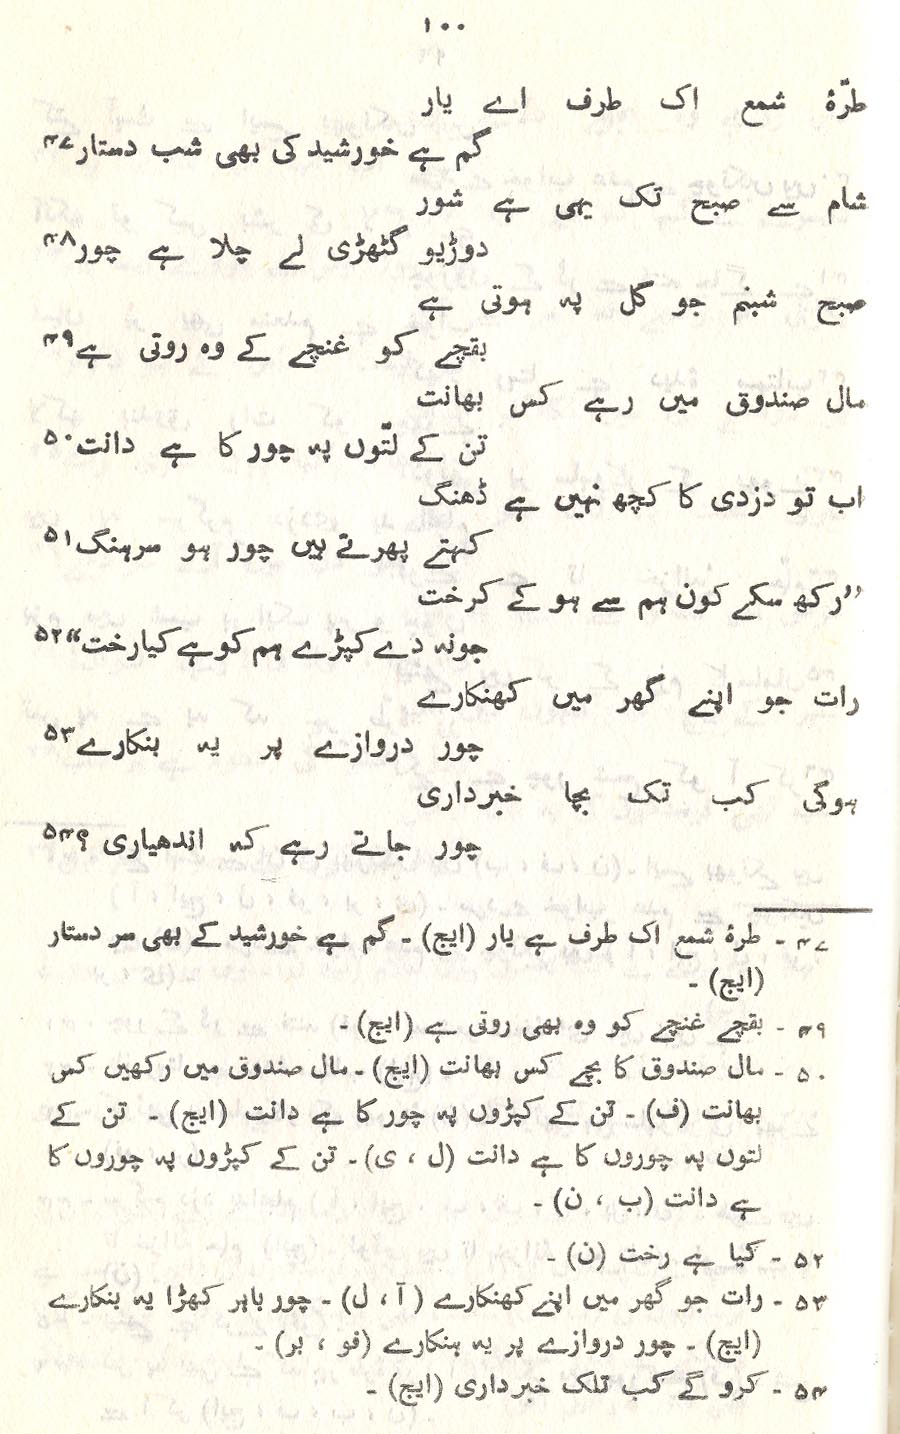 ۱۰۰
طرّۂ شمع اک طرف اے یار
گم ہے خورشید کی بھی شب دستار۴۷
شام سے صبح تک یہی ہے شور
دوڑیو گٹھڑی لے چلا ہے چور۴۸
صبح شبنم جو گل پہ ہوتی ہے
بقچے کو غنچے کے وہ روتی ہے۴۹
مال صندوق میں رہے کس بھانت
تن کے لتّوں پہ چور کا ہے دانت۵۰
اب تو دزدی کا کچھ نہیں ہے ڈھنگ
کہتے پھرتے ہیں چور ہو سرہنگ۵۱
”رکھ سکے کون ہم سے ہو کے کرخت
جو نہ دے کپڑے ہم کو ہے کیا رخت“۵۲
رات جو اپنے گھر میں کھنکارے
چور دروازے پر یہ بنکارے۵۳
ہوگی کب تک بچا خبرداری
چور جاتے رہے کہ اندھیاری ؟۵۴
۴۷ - طرۂ شمع اک طرف ہے یار (ایج) - گم ہے خورشید کے بھی سر دستار
(ایج) -
۴۹ - بقچے غنچے کو وہ بھی روتی ہے (ایج) -
۵۰ - مال صندوق کا بچے کس بھانت (ایج) - مال صندوق میں رکھیں کس
بھانت (ف) - تن کے کپڑوں پہ چور کا ہے دانت (ایج) - تن کے
لتوں پہ چوروں کا ہے دانت (ل ، ی) - تن کے کپڑوں پہ چوروں کا
ہے دانت (ب ، ن) -
۵۲ - کیا ہے رخت (ن) -
۵۳ - رات جو گھر میں اپنے کھنکارے (آ ، ل) - چور باہر کھڑا یہ بنکارے
(ایج) - چور دروازے پر یہ ہنکارے (فو ، بر) -
۵۴ - کرو گے کب تلک خبرداری (ایج) -